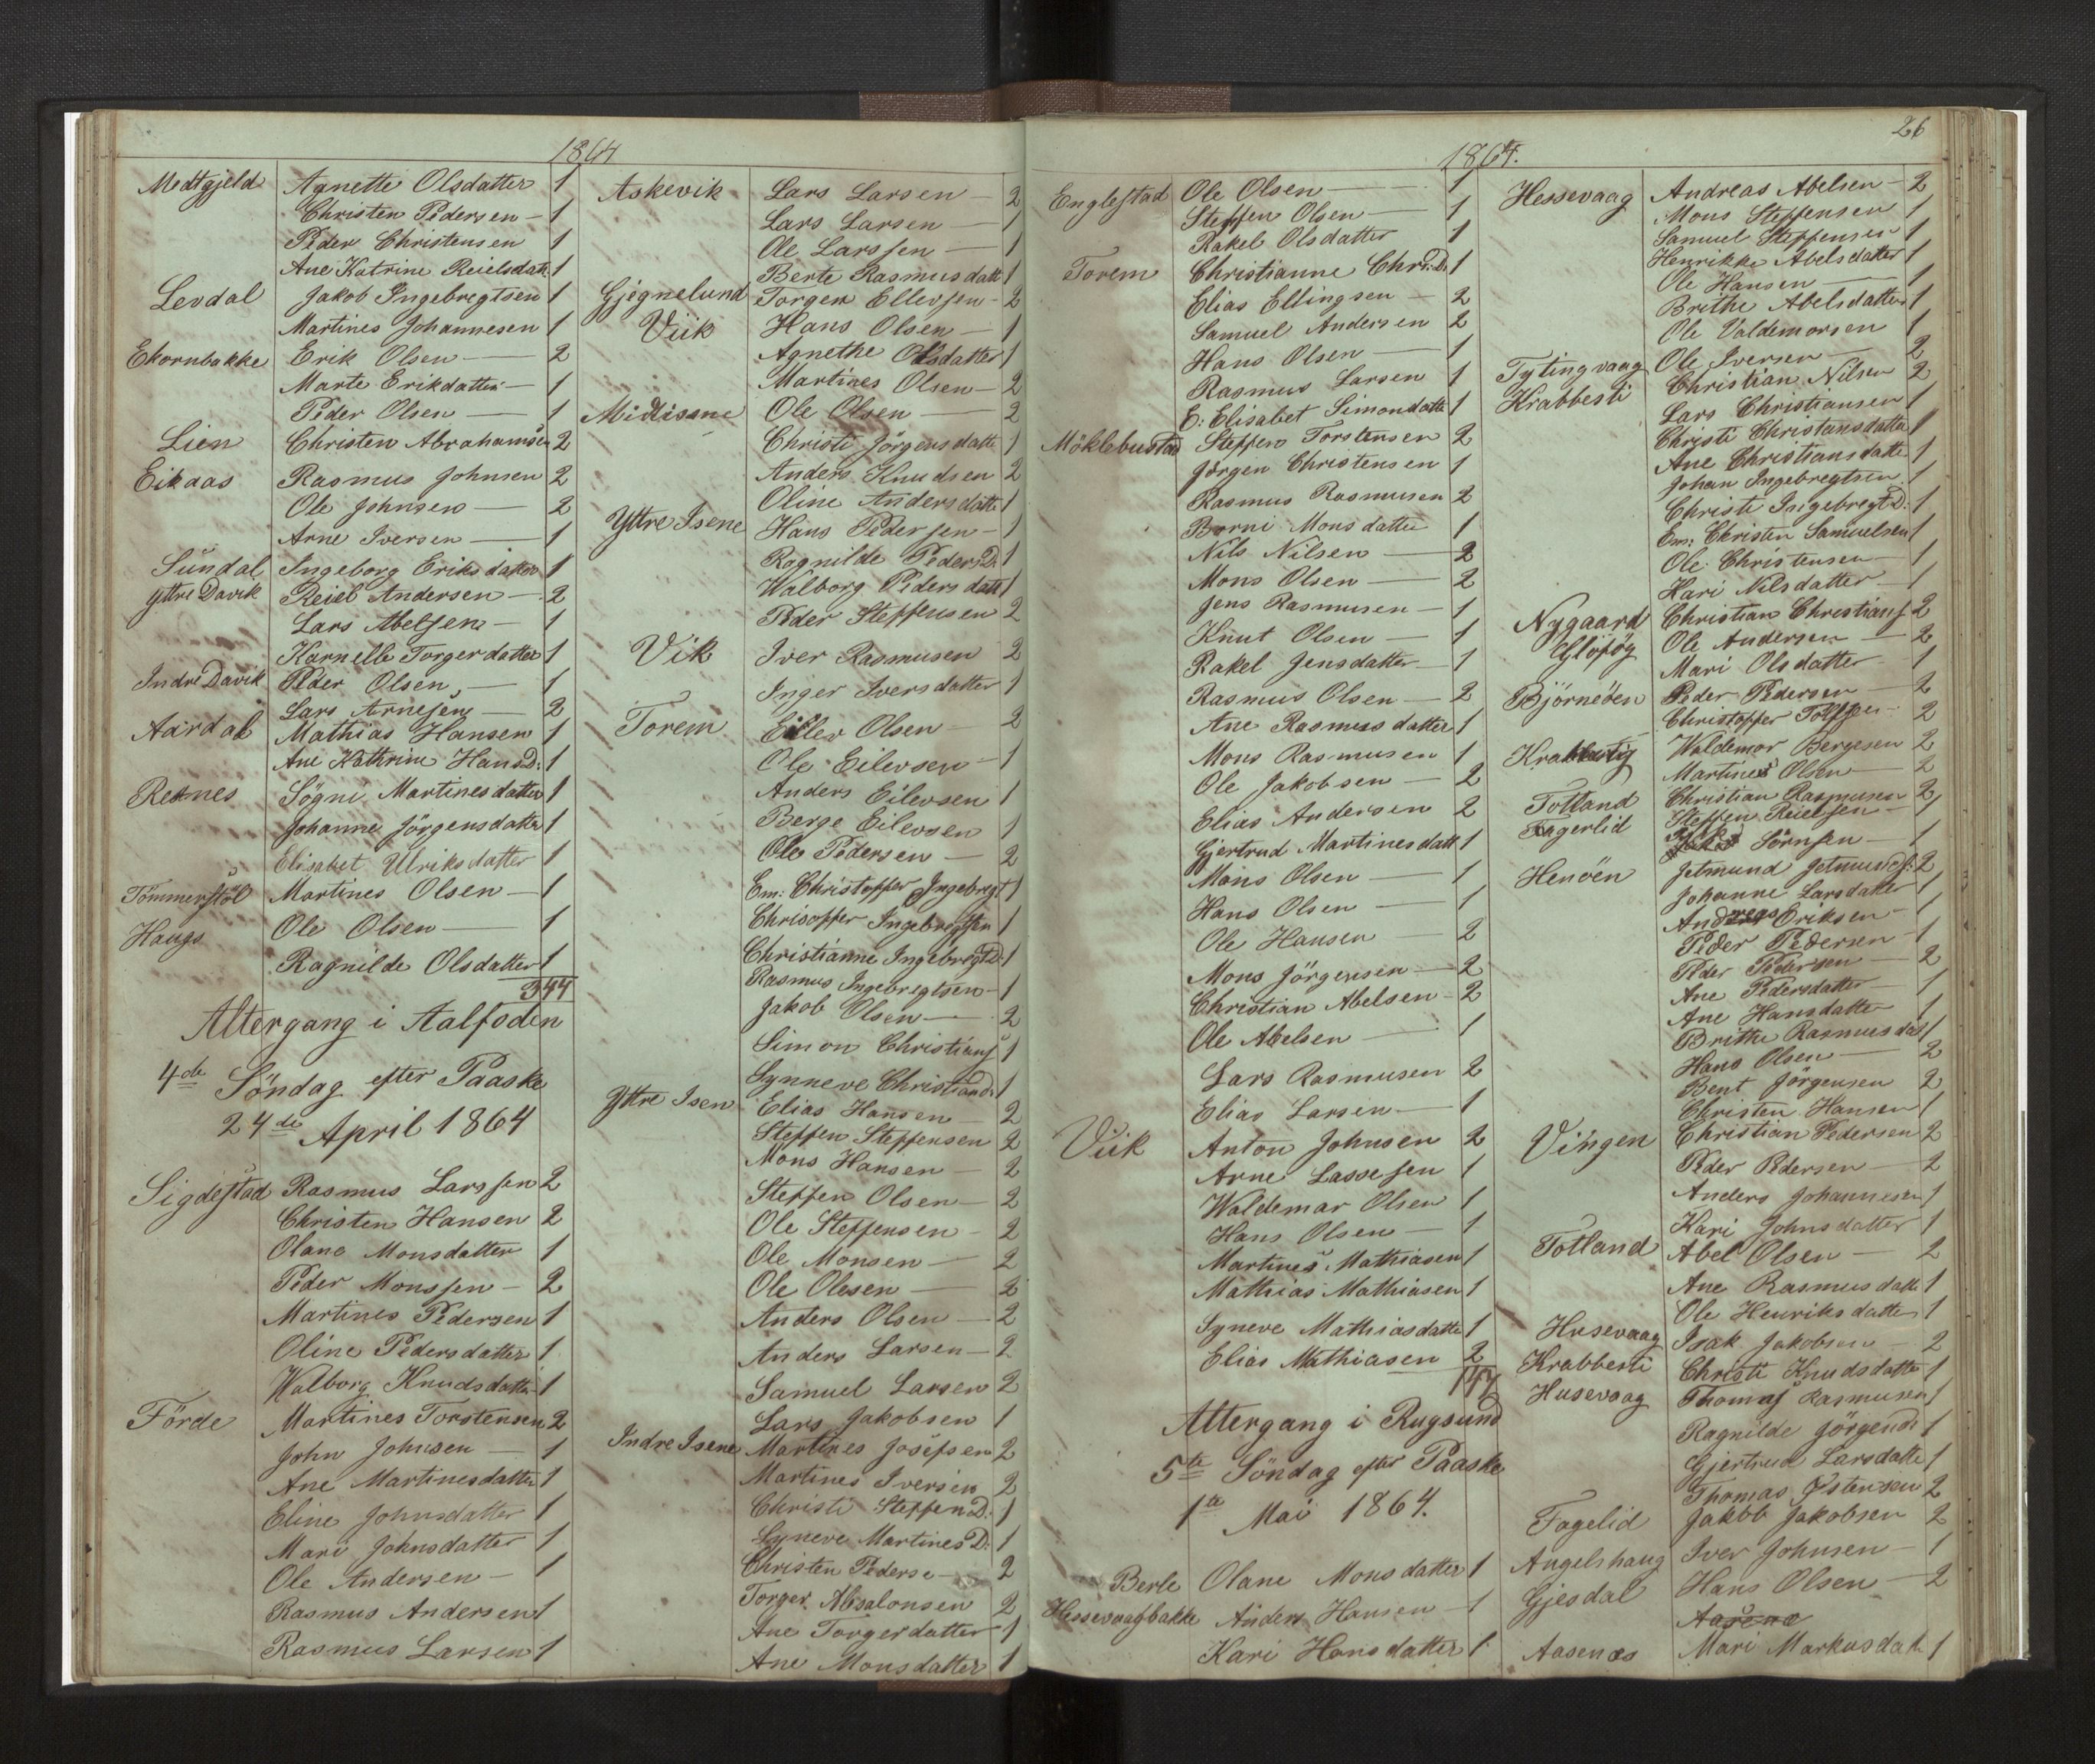 1864
Medtgjeld Agnette Olsdatter 1
Christen Pedersen – 1
Peder Christensen 1
Ane Katrine Reielsdatt 1
Levdal Jakob Ingebregtsen 1
Martines Johannesen 1
Ekornbakke Erik Olsen — 2
Marte Erikdatter – 1
Peder Olsen — 1
Lien Christen Abrahamsen 2
Eikaas Rasmus Johnsen 2
Ole Johnsen — 2
Arne Iversen — 1
Sundal Ingeborg Eriksdatter 1
Yttre Davik Reiel Andersen – 2
Lars Abelsen – 1
Karnelle Torgerdatter 1
Indre Davik Peder Olsen, — 1
Lars Arnesen — 2
Aardal Mathias Hansen 1
Ane Kathrine HansD: 1
Rennes Sögni Martinesdatter 1
Johanne Jörgensdatter 1
Elisabet Ulriksdatter 1
Tömmerstöl Martines Olsen – 1
Haugs Ole Olsen — 1
Ragnilde Olsdatter 1
344
Altergang i Aalfoden
4de Söndag efter Paaske
24de April 1864
Sigdestad Rasmus Larssen 2
Christen Hansen 2
Olane Monsdatter 1
Peder Monssen – 2
Martines Pedersen 1
Oline Pedersdatter 1
Walborg Knudsdatter 1
Förde Martines Torstensen 2
John Johnsen — 1
Ane Martinesdatter 1
Eline Johnsdatter 1
Mari Johnsdatter 1
Ole Andersen – 1
Rasmus Andersen 1
Rasmus Larsen 1
Askevik Lars Larsen – 2
Lars Larsen — 1
Ole Larssen — 1
Berte Rasmusdatt 1
Gjegnelund Torger Ellevsen – 2
Viik Hans Olsen — 1
Agnethe Olsdatter 1
Martines Olsen – 2
Midtisene Ole Olsen — 2
Christi Jörgensdatte 1
Anders Knudsen 2
Oline Andersdatte 1
Yttre Isene Hans Pedersen – 1
Ragnilde PedersD: 1
Walborg Pedersdatt 1
Peder Steffensen 2
Vik Iver Rasmusen 2
Inger Iversdatter 1
Torem Eillev Olsen – 2
Ole Eilevsen – 1
Anders Eilevsen 1
Berge Eilevsen 1
Ole Pedersen — 2
Em: Christoffer Ingebregt 1
Chrisoffer Ingebregtsen 1
Christianne IngebregtD: 1
Rasmus Ingebregtsen – 1
Jakob Olsen — 2
Simon Christians 1
Synneve ChristianD: 1
Yttre Isen Elias Hansen — 2
Steffen Steffensen 2
Mons Hansen — 2
Steffen Olsen – 2
Ole Steffensen – 2
Ole Monsen — 2
Ole Olesen — 2
Anders Olsen — 2
Anders Larsen – 2
Samuel Larsen 2
Lars Jakobsen 1
Indre Isene Martines Josefsen 2
Martines Iversen 2
Christi SteffenD: 1
Syneve MartinesD: 1
Christen Pederse – 2
Torger Absalonsen 2
Ane Torgerdatter 1
Ane Monsdatter 1
26
1864.
Englestad Ole Olsen — 1
Steffen Olsen — 1
Rakel Olsdatter 1
Torem Christianne Chr:D: 1
Elias Ellingsen – 2
Samuel Andersen 2
Hans Olsen — 1
Rasmus Larsen 1
E: Elisabet Simondatte 1
Möklebustad Steffen Torstensen 2
Jørgen Christensen 1
Rasmus Rasmusen 2
Berni Monsdatter 1
Nils Nilsen — 2
Mons Olsen — 2
Jens Rasmusen – 1
Knut Olsen — 1
Rakel Jensdatter – 1
Rasmus Olsen – 2
Ane Rasmusdatter 1
Mons Rasmusen 1
Ole Jakobsen – 2
Elias Andersen 2
Gjertrud Martinesdatt 1
Mons Olsen — 1
Hans Olsen — 1
Ole Hansen — 2
Mons Jörgensen – 2
Christian Abelsen – 2
Ole Abelsen — 1
Lars Rasmusen 2
Elias Larsen — 1
Viik Anton Johnsen 2
Arne Lassesen 1
Waldemar Olsen 1
Hans Olsen — 1
Martines Mathiasen 1
Mathias Mathiasen 1
Syneve Mathiasdatte 1
Elias Mathiasen 2
147
Altergang i Rugsund
5te Söndag efter Paaske
1te Mai 1864.
Berle Olane Monsdatter 1
Hessevaagbakke Anders Hansen – 1
Kari Hansdatter 1
Hessevaag Andreas Abelsen – 2
Mons Steffensen 1
Samuel Steffensen 1
Henrikke Abelsdatter 1
Ole Hansen — 1
Brithe Abelsdatter 1
Ole Valdemorsen 1
Tytingvaag Ole Iversen — 2
Krabbesti Christian Nilsen 2
Lars Christiansen 1
Christi Christiansdatter 1
Ane Christiansdatte 1
Johan Ingebregtsen 1
Christi IngebregtD: 1
Em: Christen Samuelsen 1
Ole Christensen – 1
Kari Nilsdatter – 1
Nygaard Christian Christians 2
Glöfög Ole Andersen — 2
Mari Olsdatter – 1
Björneöen Peder Pedersen – 2
Christoffer 2
Waldemor Bergesen 2
Martines Olsen – 2
Totland Christian Rasmusen 2
Fagerlid Steffen Reielsen – 1
Sörnsen – 1
Henöen Jetmund Jetmunds: 2
Johanne Larsdatter 1
Andreas Eriksen – 1
Peder Pedersen – 1
Peder Pedersen – 2
Ane Pedersdatter – 1
Ane Hansdatter 1
Brithe Rasmusdat 1
Hans Olsen — 2
Bent Jörgensen 2
Christen Hansen 1
Vingen Christian Pedersen 2
Peder Pedersen – 2
Anders Johannesen 1
Kari Johnsdatter 1
Totland Abel Olsen – 2
Ane Rasmusdatte 1
Ole Henriksdatter 1
Husevaag Isak Jakobsen – 2
Krabbesti Christi Knudsdatter 1
Husevaag Thomas Rasmusen 1
Ragnilde Jörgensd: 1
Gjertrud Larsdatte 1
Thomas Østensen 2
Fagelid Jakob Jakobsen 2
Angelshaug Iver Johnsen – 1
Gjesdal Hans Olsen — 2
Aasene
Aasenæs Mari Markusdatt 1